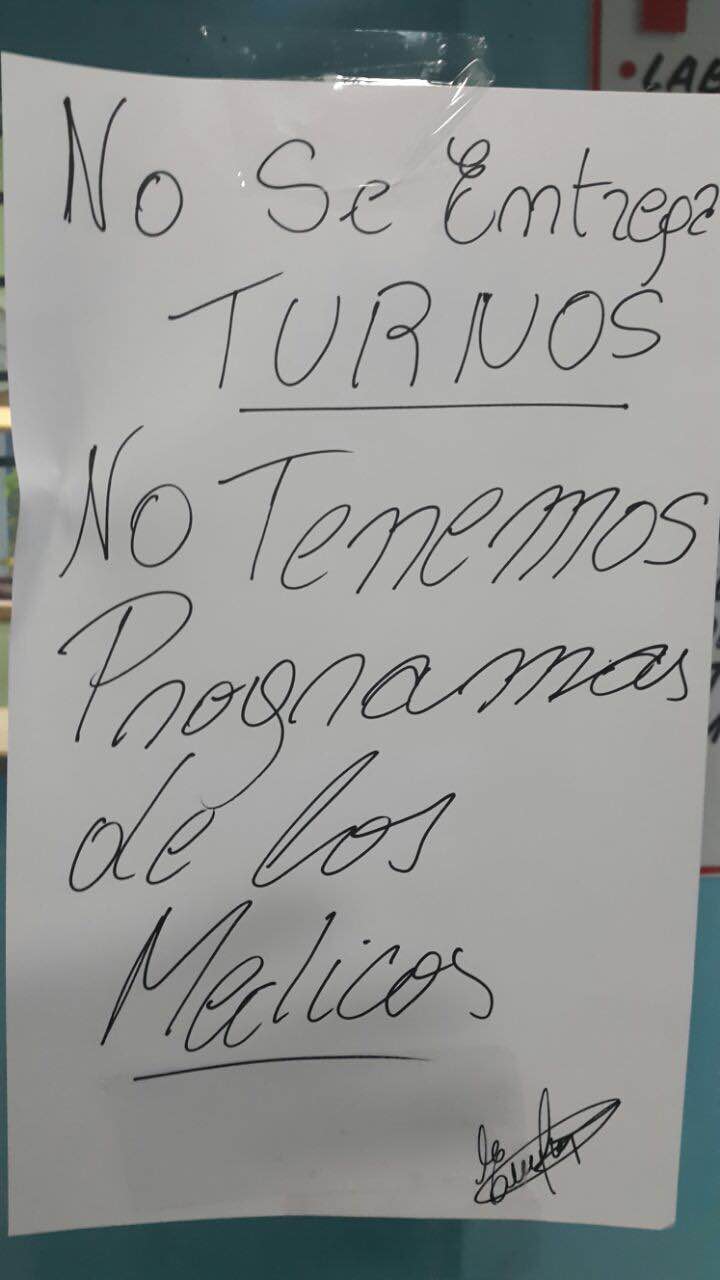 • LAB
No Se Entrega
TURNOS
No Tenemos
Programas
de los
Medicos